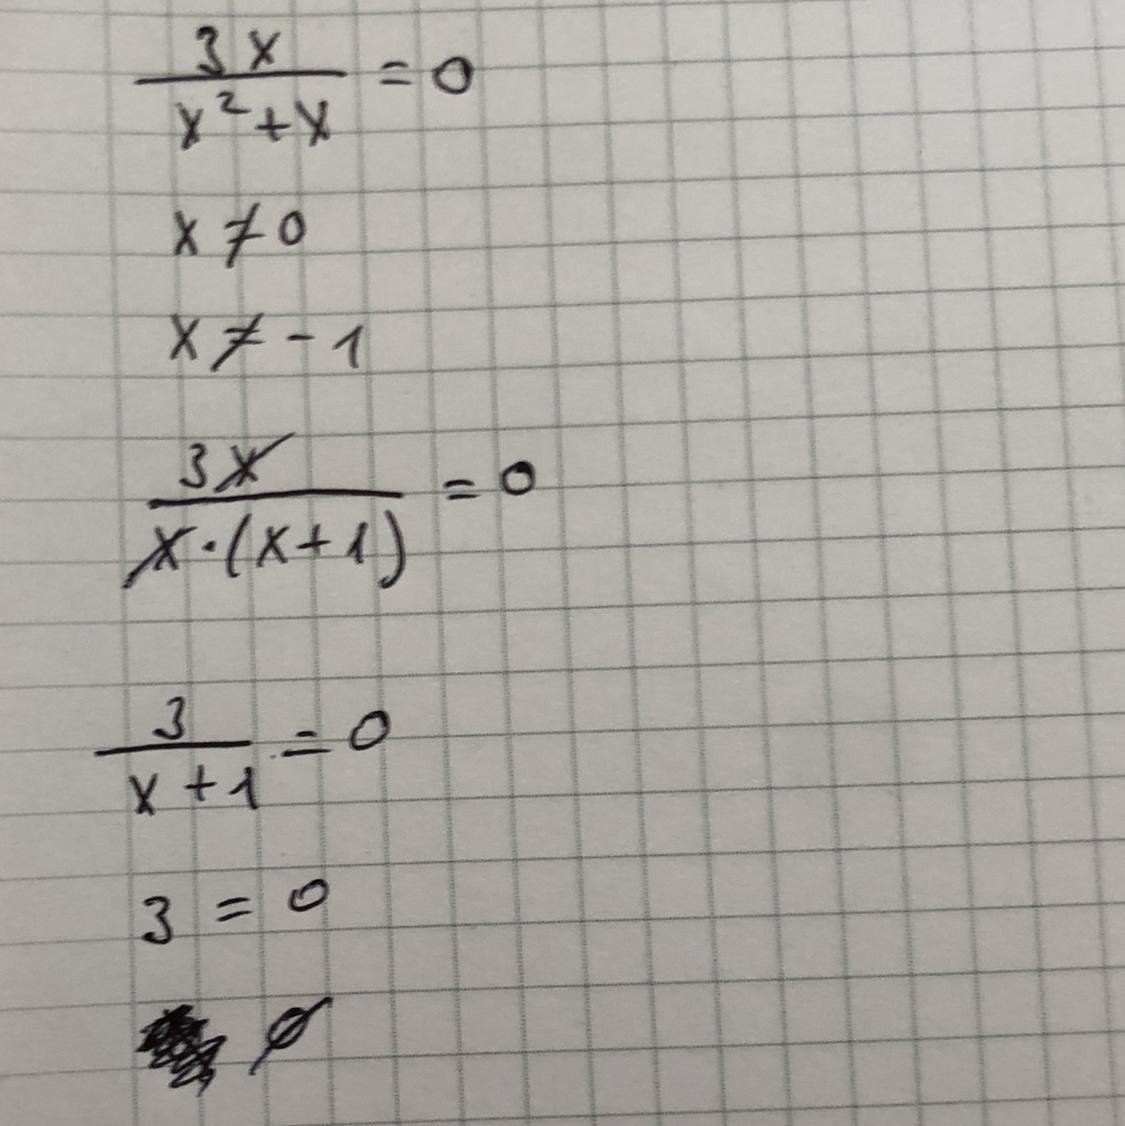 3x/(x²+x) = 0
x ≠ 0
x ≠ -1
3x/(x·(x+1)) = 0
3/(x+1) = 0
3 = 0
∅